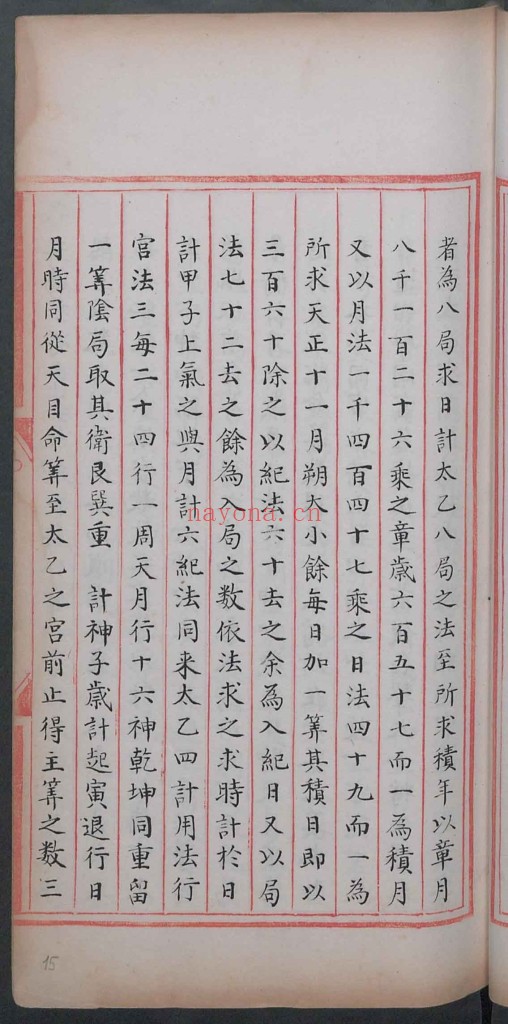 者為八局求日計太乙八局之法至所求積年以章月
八千一百二十六乘之章歲六百五十七而一為積月
又以月法一千四百四十七乘之日法四十九而一為
所求天正十一月朔大小餘每日加一筭其積日即以
三百六十除之以紀法六十去之余為入紀日又以局
法七十二去之餘為入局之数依法求之求時計於日
計甲子上氣之與月計六紀法同来太乙四計用法行
宮法三每二十四行一周天月行十六神乾坤同重留
一筭陰局取其衛艮巽重 計神子歲計起寅退行日
月時同從天目命筭至太乙之宮前止得主筭之数三
nayona.cn
15